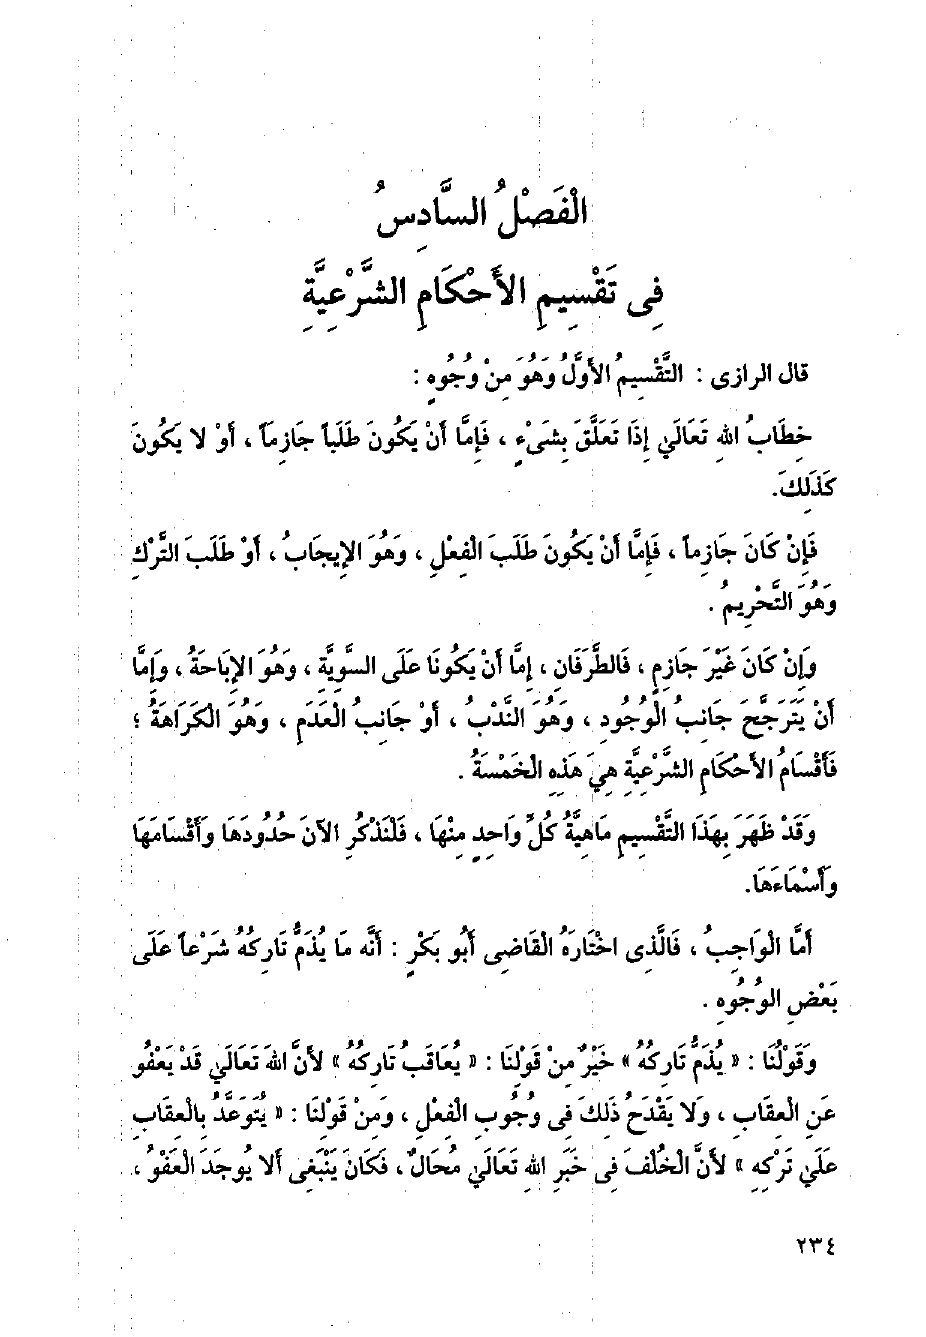 الْفَصْلُ السَّادِسُ
فِى تَقْسِيمِ الأَحْكَامِ الشَّرْعِيَّةِ
قال الرازى : التَّقْسِيمُ الأَوَّلُ وَهُوَ مِنْ وُجُوهٍ :
خِطَابُ اللهِ تَعَالَي إِذَا تَعَلَّقَ بِشَىْءٍ ، فَإِمَّا أَنْ يَكُونَ طَلَباً جَازِماً ، أَوْ لا يَكُونَ
كَذَلِكَ.
فَإِنْ كَانَ جَازِماً ، فَإِمَّا أَنْ يَكُونَ طَلَبَ الْفِعْلِ ، وَهُوَ الإِيجَابُ ، أَوْ طَلَبَ التَّرْكِ
وَهُوَ التَّحْرِيمُ .
وَإِنْ كَانَ غَيْرَ جَازِمٍ ، فَالطَّرَفَانِ ، إِمَّا أَنْ يَكُونَا عَلَى السَّوِيَّةِ ، وَهُوَ الإِبَاحَةُ ، وَإِمَّا
أَنْ يَتَرَجَّحَ جَانِبُ الْوُجُودِ ، وَهُوَ النَّدْبُ ، أَوْ جَانِبُ الْعَدَمِ ، وَهُوَ الْكَرَاهَةُ ؛
فَأَقْسَامُ الأَحْكَامِ الشَّرْعِيَّةِ هِيَ هَذِهِ الْخَمْسَةُ .
وَقَدْ ظَهَرَ بِهَذَا التَّقْسِيمِ مَاهِيَّةُ كُلِّ وَاحِدٍ مِنْهَا ، فَلْنَذْكُرِ الآنَ حُدُودَهَا وَأَقْسَامَهَا
وَأَسْمَاءَهَا.
أَمَّا الْوَاجِبُ ، فَالَّذِى اخْتَارَهُ الْقَاضِى أَبُو بَكْرٍ : أَنَّه مَا يُذَمُّ تَارِكُهُ شَرْعاً عَلَى
بَعْضِ الْوُجُوهِ .
وَقَوْلُنَا : « يُذَمُّ تَارِكُهُ » خَيْرٌ مِنْ قَوْلِنَا : « يُعَاقَبُ تَارِكُهُ » لأَنَّ اللهَ تَعَالَي قَدْ يَعْفُو
عَنِ الْعِقَابِ ، وَلا يَقْدَحُ ذَلِكَ فِى وُجُوبِ الْفِعْلِ ، وَمِنْ قَوْلِنَا : « يُتَوَعَّدُ بِالْعِقَابِ
عَلَي تَرْكِهِ » لأَنَّ الْخُلْفَ فِى خَبَرِ اللهِ تَعَالَي مُحَالٌ ، فَكَانَ يَنْبَغِى أَلا يُوجَدَ الْعَفْوُ ،
٢٣٤